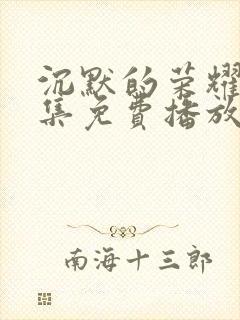 沉默的荣耀
集免费播放
南海十三郎